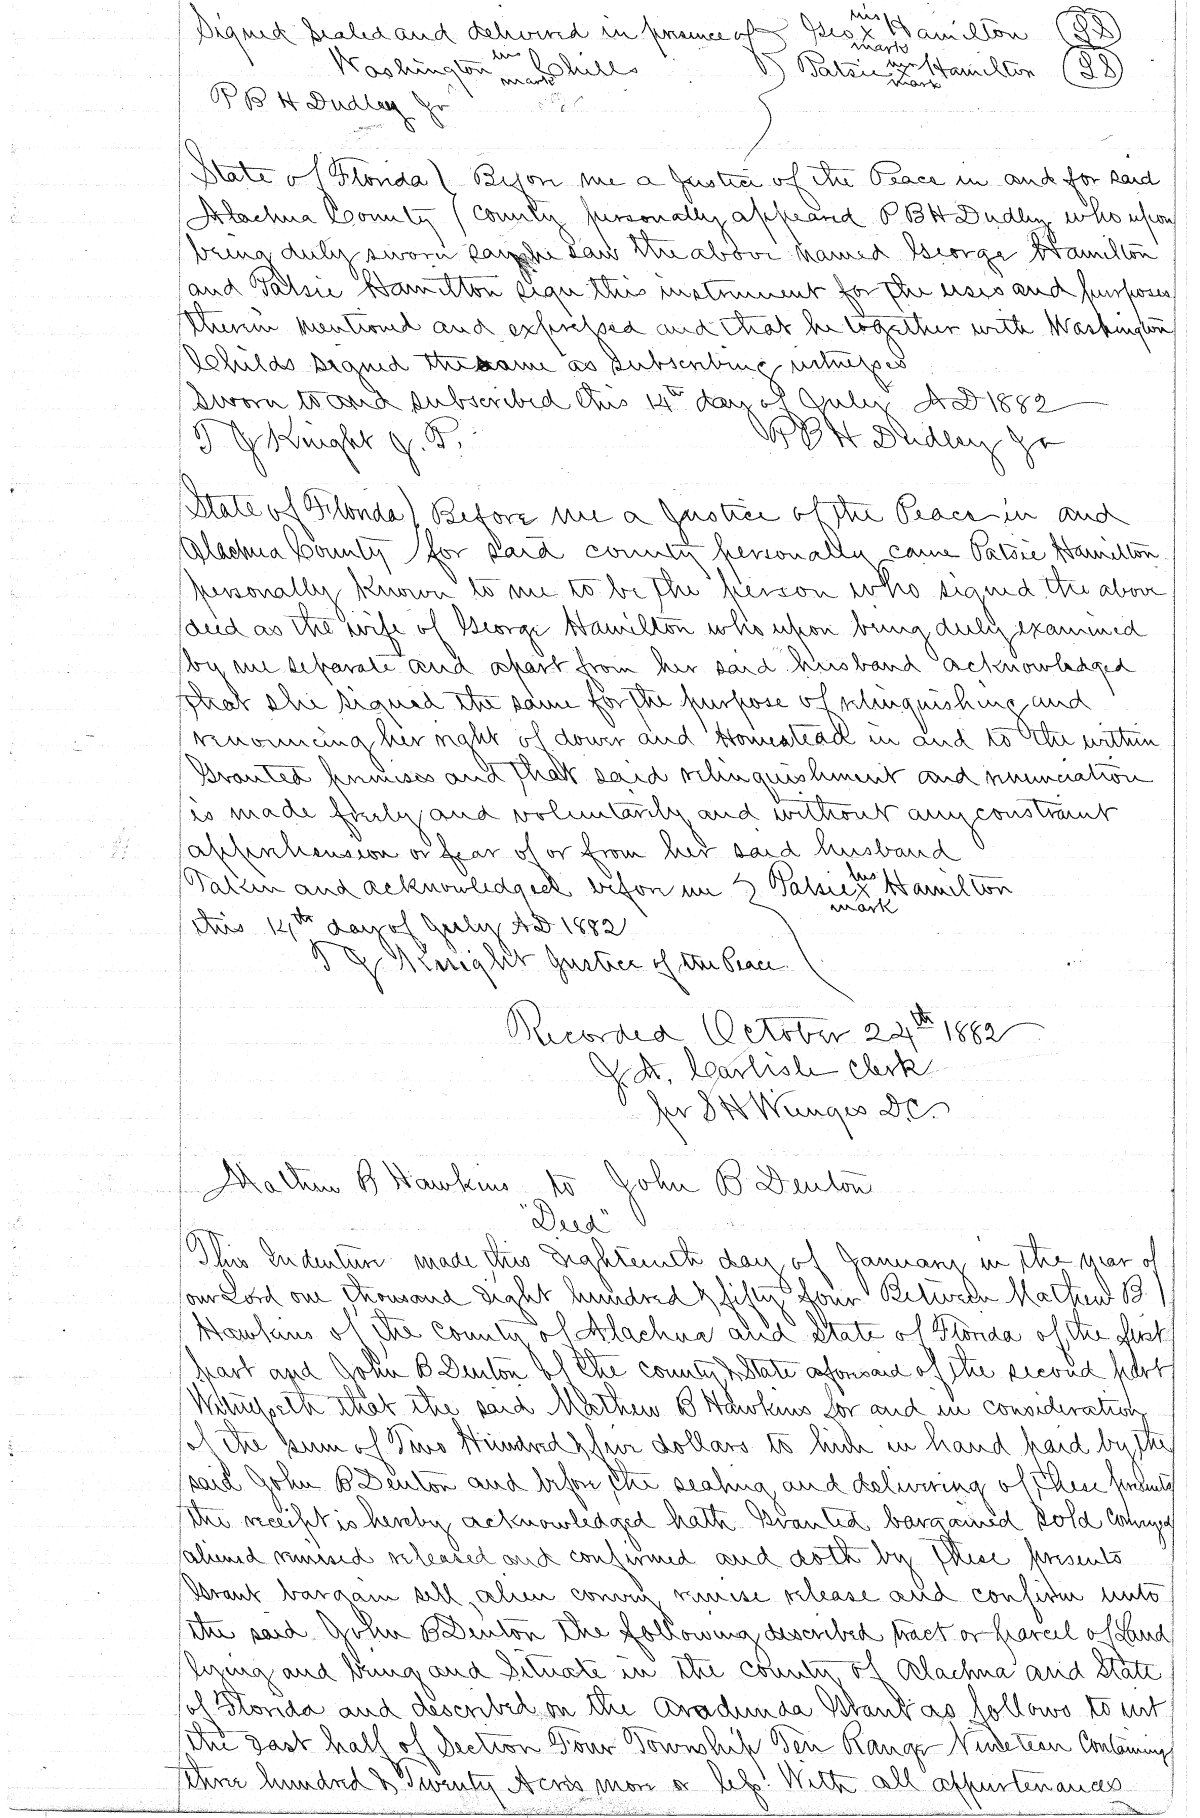 Signed Sealed and delivered in presence of Geo his x mark Hamilton (LS)
Washington his mark Childs Patsie her x mark Hamilton (LS)
P B H Dudley Jr
State of Florida ) Before me a Justice of the Peace in and for said
Alachua County ( county personally appeared P B H Dudley who upon
being duly sworn says he saw the above named George Hamilton
and Patsie Hamilton sign this instrument for the uses and purposes
therein mentioned and expressed and that he together with Washington
Childs signed the same as subscribing witnesses
Sworn to and subscribed this 14th day of July A D 1882
T J Knight J. P. P B H Dudley Jr
State of Florida ) Before me a Justice of the Peace in and
Alachua County ( for said county personally came Patsie Hamilton
personally known to me to be the person who signed the above
deed as the wife of George Hamilton who upon being duly examined
by me separate and apart from her said husband acknowledged
that she signed the same for the purpose of relinquishing and
renouncing her right of dower and Homestead in and to the within
Granted premises and that said relinquishment and renunciation
is made freely and voluntarily and without any constraint
apprehension or fear of or from her said husband
Taken and acknowledged before me Patsie his x mark Hamilton
this 14th day of July A D 1882
T J Knight Justice of the Peace
Recorded October 24th 1882
J. A. Carlisle Clerk
per S H Wienges D.C.
Mathew B Hawkins to John B Denton
"Deed"
This Indenture made this Eighteenth day of January in the year of
our Lord one thousand Eight hundred & fifty four Between Mathew B
Hawkins of the county of Alachua and State of Florida of the first
part and John B Denton of the county & State aforesaid of the second part
Witnesseth that the said Mathew B Hawkins for and in consideration
of the sum of Two Hundred & five dollars to him in hand paid by the
said John B Denton and before the sealing and delivering of these presents
the receipt is hereby acknowledged hath Granted bargained sold conveyed
aliened remised released and confirmed and doth by these presents
Grant bargain sell, alien convey remise release and confirm unto
the said John B Denton the following described tract or parcel of Land
lying and being and Situate in the county of Alachua and State
of Florida and described in the Arredunda Grant as follows to wit
the East half of Section Four Township Ten Range Nineteen Containing
three hundred & Twenty Acres more or less. With all appurtenances